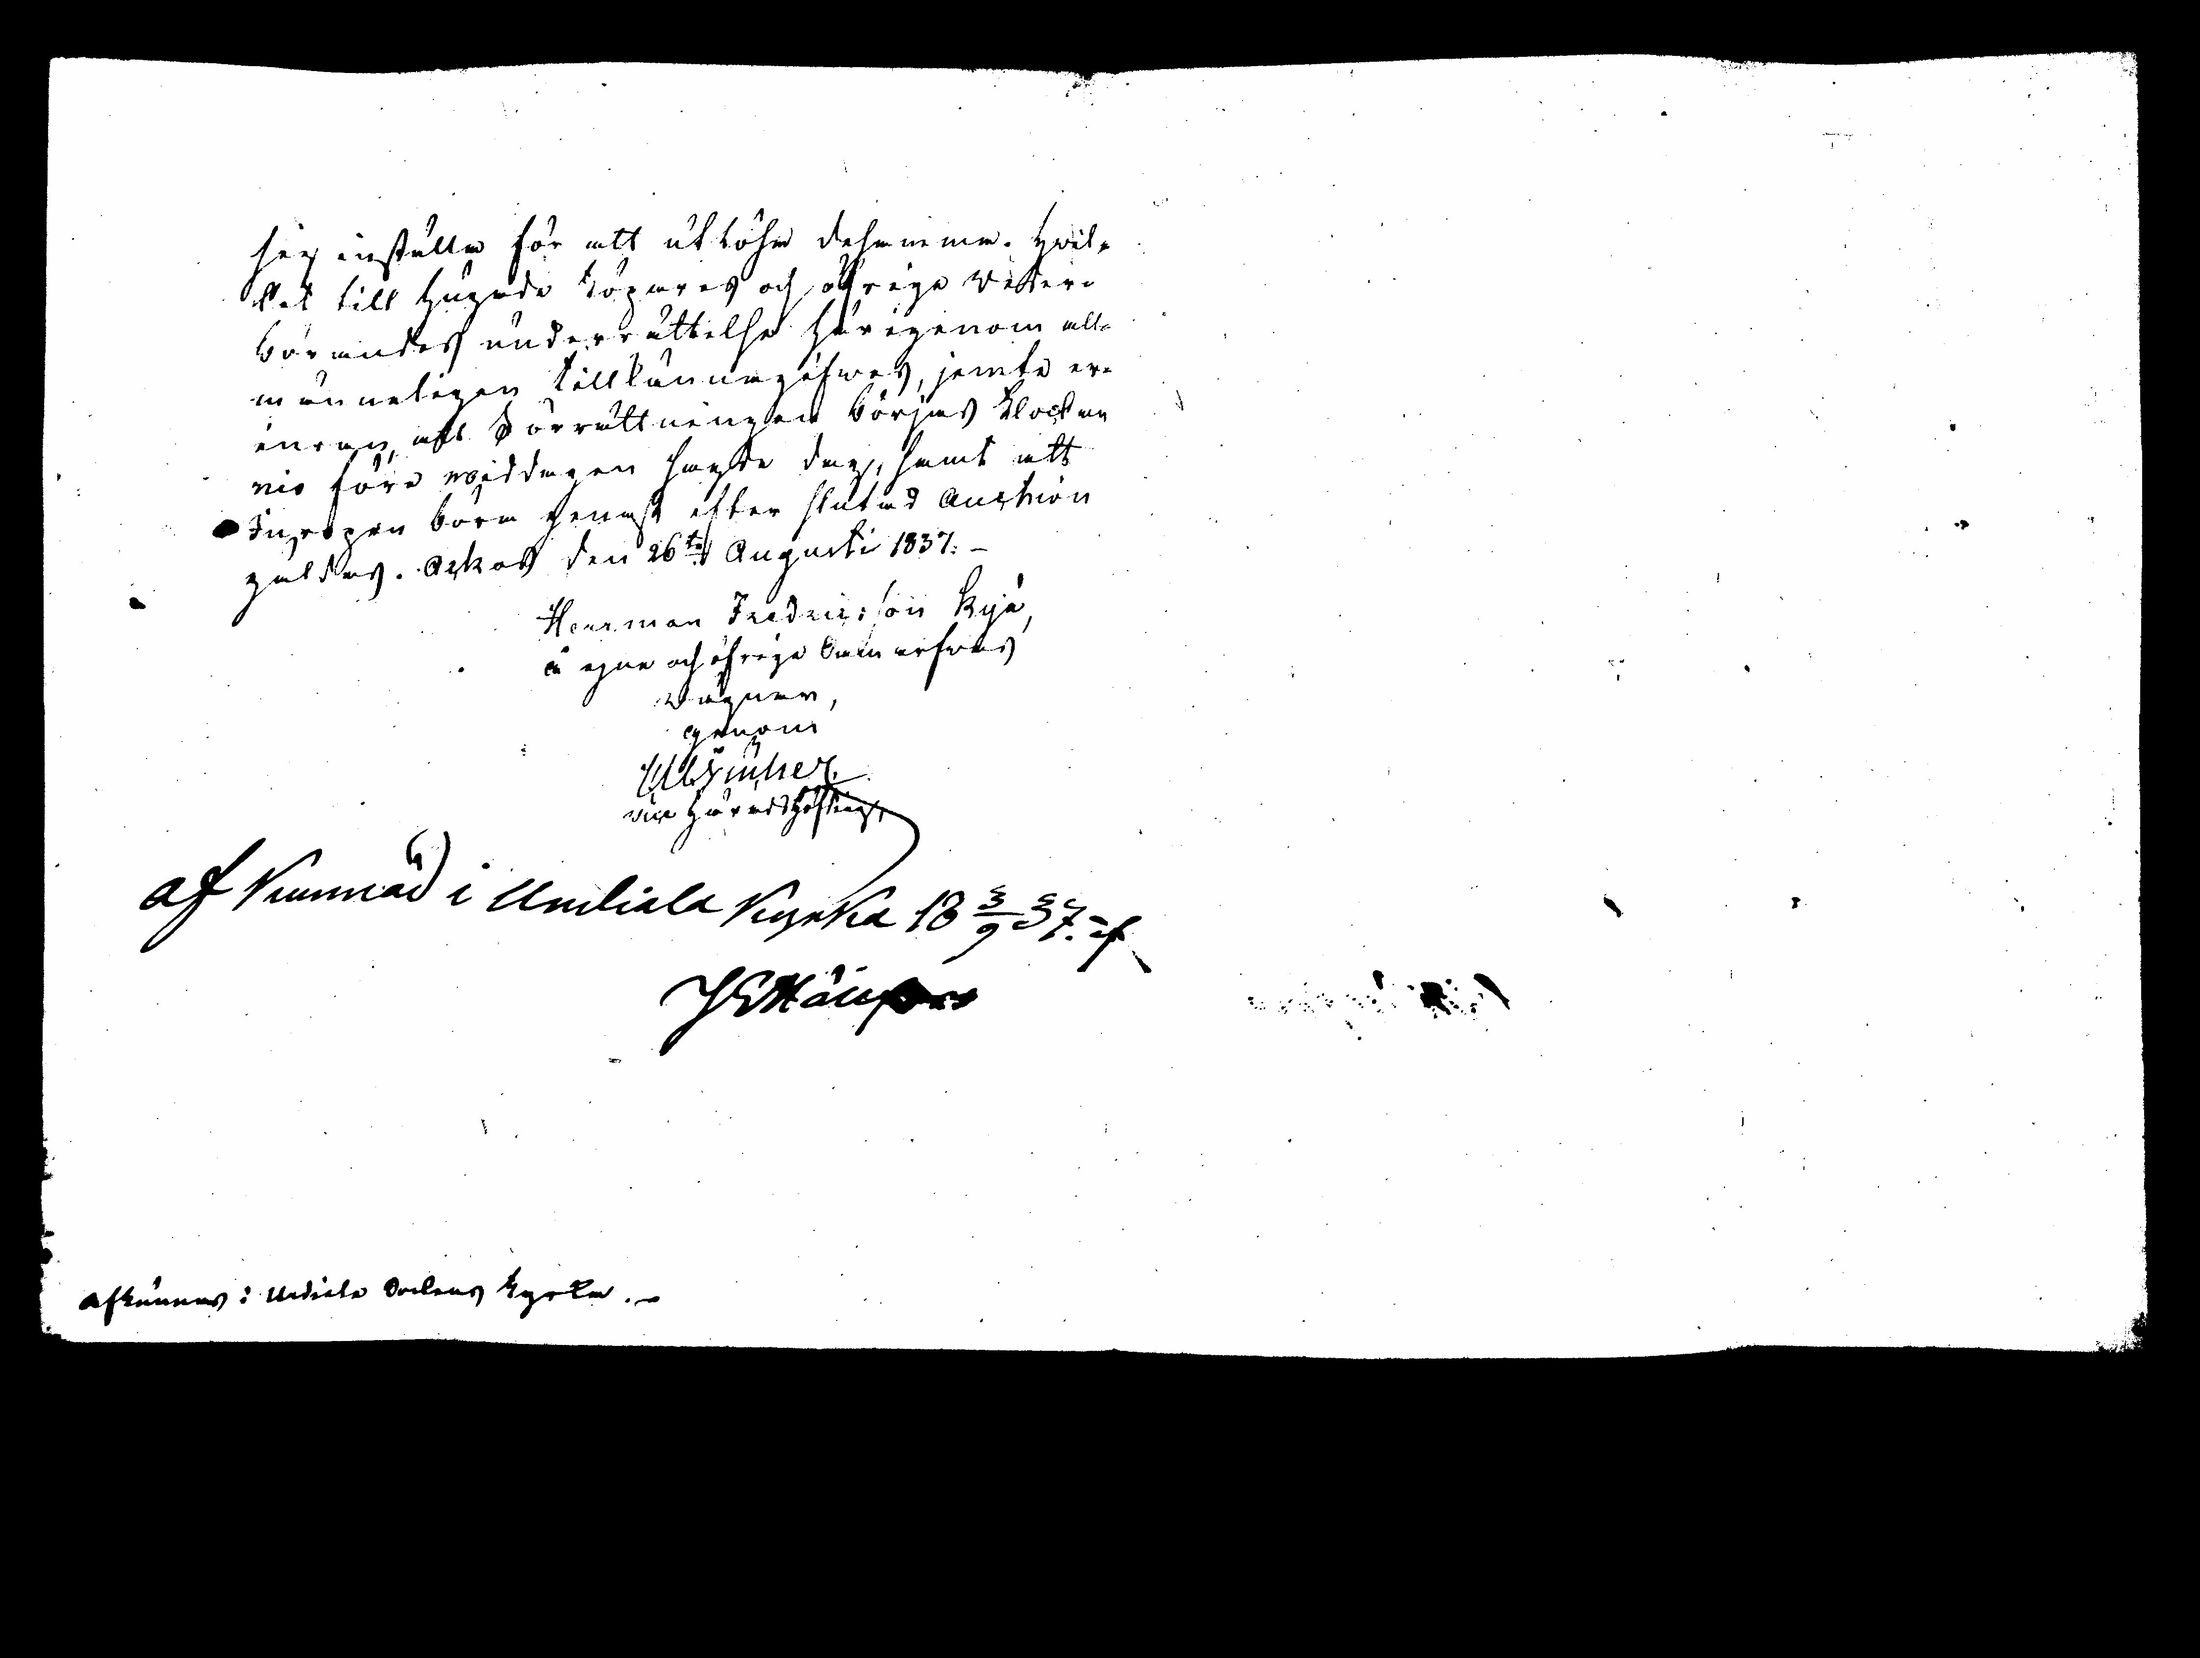 sig inställa för att utlösa desamma. Hvil-
ket till hugade köpares och öfrige veder-
börandes underrättelse härigenom all-
männeligen tillkännagifwes, jemte er-
inran, att Förrättningen börjas klockan
nio före middagen sagde dag, samt att
Inropen böra genast efter slutad Auction
gäldas. Askas den 26te Augusti 1837. –
Herrman Fredricsson Rya,
å egne och öfrige Samarfwas
vägnar,
genom
vice Häradshöfding
af kunnad i Urdiala kyrka 18 3/9 37. af
Afkunnas i Urdiala Sockens kyrka. –